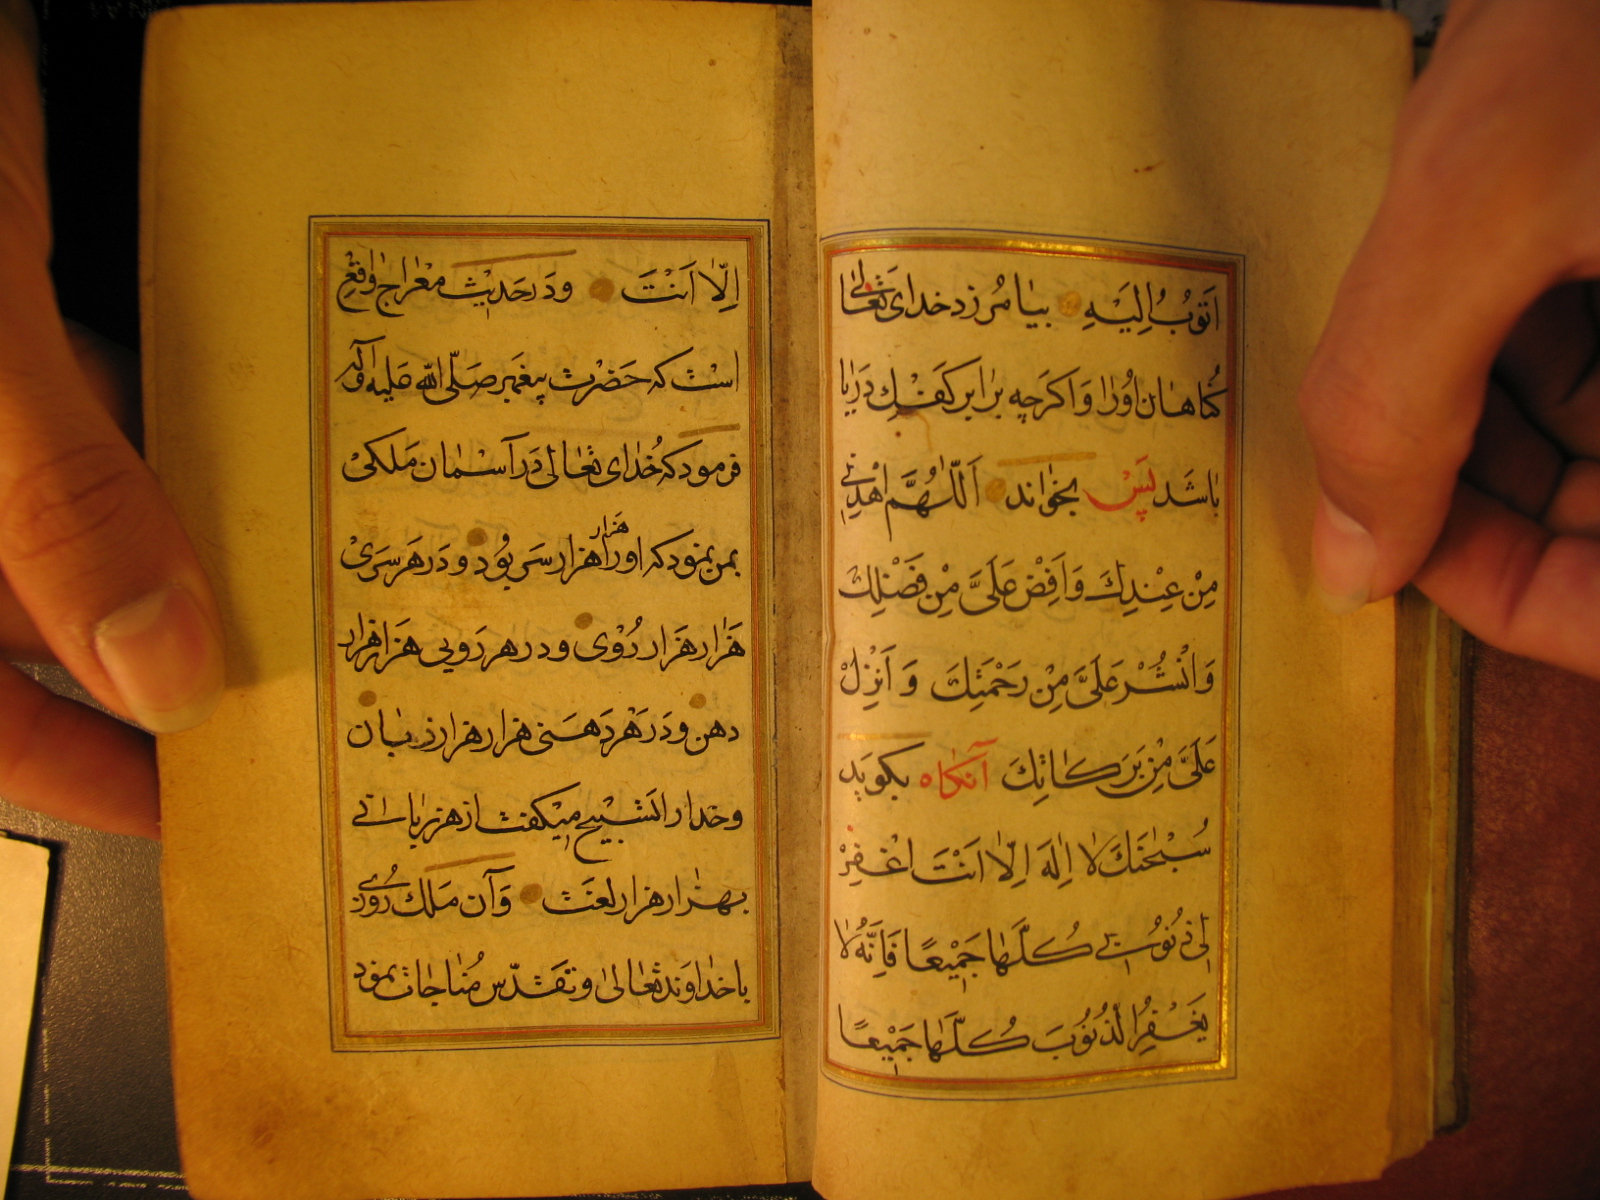 اَتُوبُ اِلَيْهِ بیامرزد خدای تَعٰالٰی
کُناهان اورا وَاکرچه برابر کَفْكِ دریا
باشد پَسْ بخواند اَللّٰهُمَّ اهْدِنِی
مِنْ عِنْدِكَ وَاَفِضْ عَلَیَّ مِنْ فَضْلِكَ
وَانْشُرْ عَلَیَّ مِنْ رَحْمَتِكَ وَ اَنْزِلْ
عَلَیَّ مِنْ بَرَكاتِكَ آنکاه بکوید
سُبْحٰنَكَ لا اِلٰهَ اِلّا اَنْتَ اغْفِرْ
لِی ذُنُوبِی كُلَّهٰا جَمِیْعًا فَاِنَّهُ لا
یَغْفِرُ الذُّنُوبَ كُلَّهٰا جَمِیْعًا
اِلّا اَنْتَ وَدَر حَدیْث مِعْراج وٰاقِع
است که حَضْرت پیغمبر صَلّی اللّه عَلیه وَآله
فرمود که خُدای تعالی دَر آسْمان مَلَکی
بمن نمود که اورا هزار هزار سَر بُود و دَر هَر سَرِیْ
هَزار هَزار رُوْی و در هر رَویی هَزار هزار
دهن و دَر هر دَهَنی هزار هزار زبان
وخدارا تَسْبیح میْکفت از هر زبانی
بهزار هزار لغَت وَآن مَلك رُوزی
با خداوَند تَعالیٰ و تَقَدّس مُناجات نمود